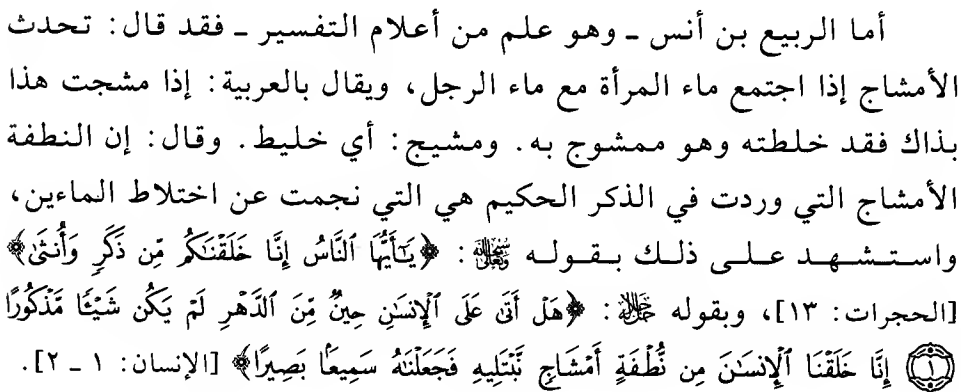 أما الربيع بن أنس ـ وهو علم من أعلام التفسير ـ فقد قال: تحدث
الأمشاج إذا اجتمع ماء المرأة مع ماء الرجل، ويقال بالعربية: إذا مشجت هذا
بذاك فقد خلطته وهو ممشوج به. ومشيج: أي خليط. وقال: إن النطفة
الأمشاج التي وردت في الذكر الحكيم هي التي نجمت عن اختلاط الماءين،
واستشهد على ذلك بقوله: ﴿يَٰٓأَيُّهَا ٱلنَّاسُ إِنَّا خَلَقْنَٰكُم مِّن ذَكَرٍ وَأُنثَىٰ﴾
[الحجرات: ١٣]، وبقوله: ﴿هَلْ أَتَىٰ عَلَى ٱلْإِنسَٰنِ حِينٌ مِّنَ ٱلدَّهْرِ لَمْ يَكُن شَيْـًٔا مَّذْكُورًا
١ إِنَّا خَلَقْنَا ٱلْإِنسَٰنَ مِن نُّطْفَةٍ أَمْشَاجٍ نَّبْتَلِيهِ فَجَعَلْنَٰهُ سَمِيعًۢا بَصِيرًا﴾ [الإنسان: ١ ـ ٢].